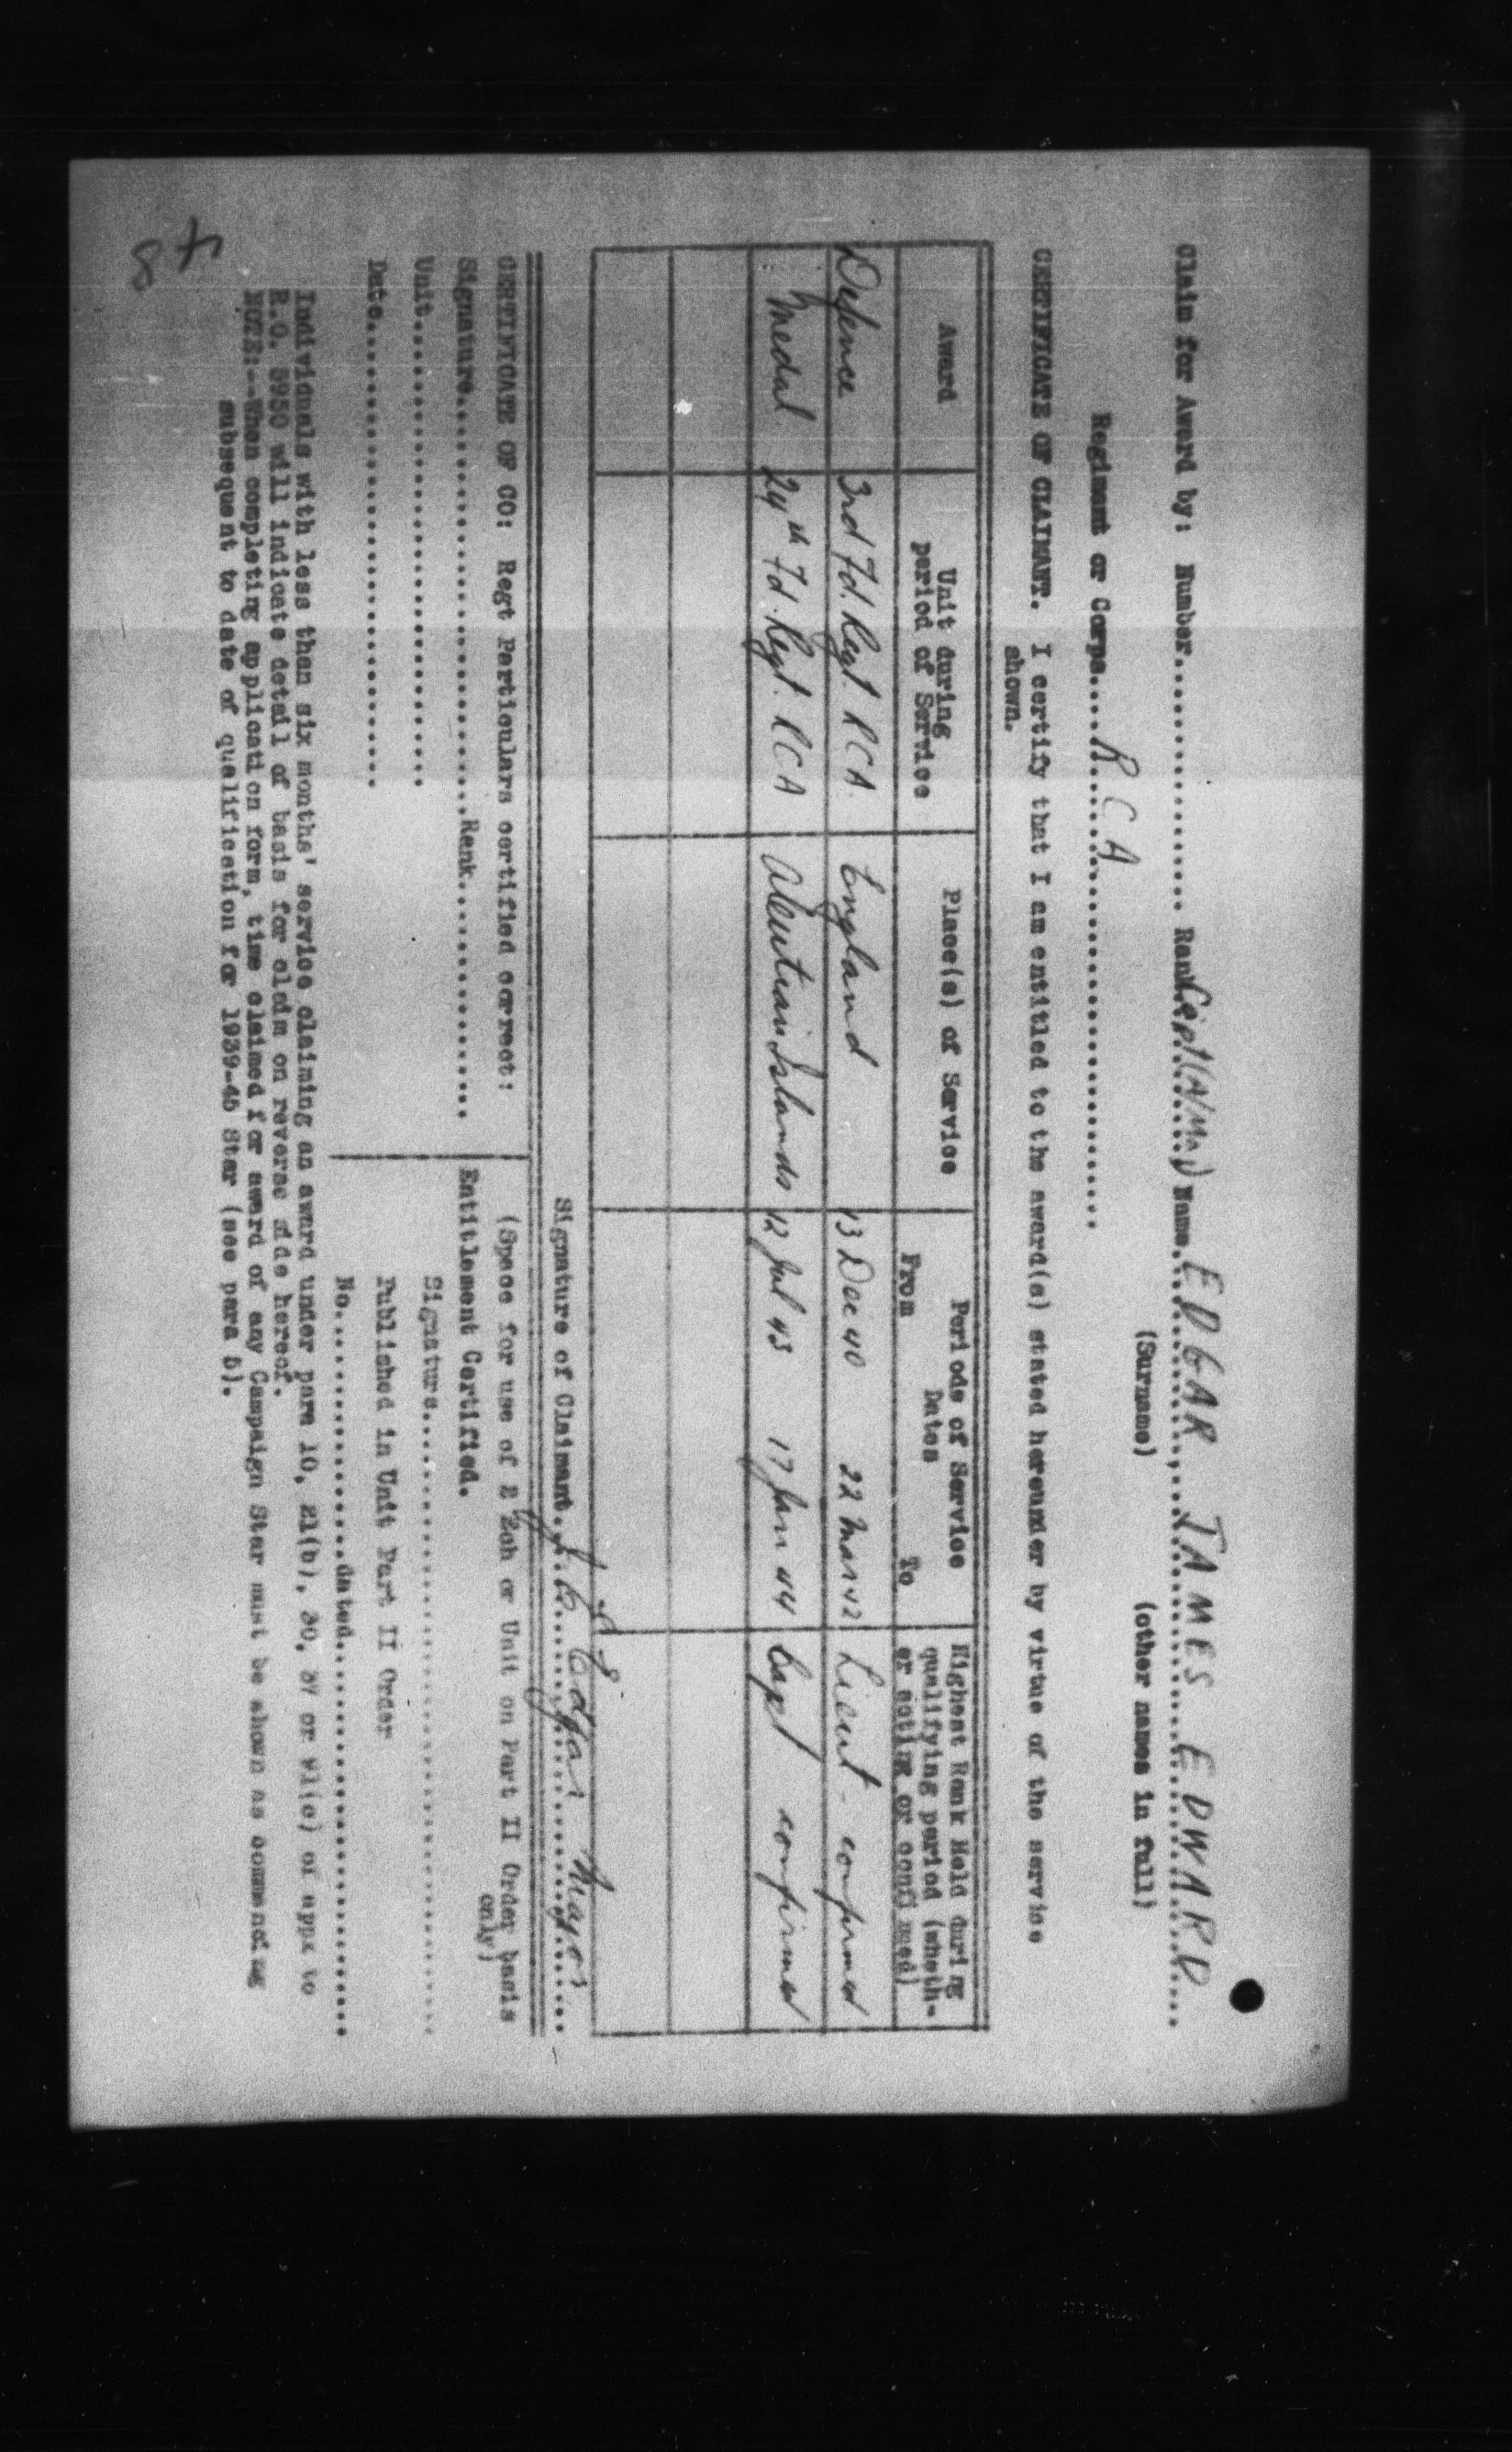 Claim for Award by: Number........................ Rank Capt (A/Maj) Name. EDGAR, JAMES EDWARD
(Surname) (other names in full)
Regiment or Corps.... R C A
CERTIFICATE OF CLAIMANT. I certify that I am entitled to the award(s) stated hereunder by virtue of the service
shown.
Award
Unit during
period of Service
Place(s) of Service
Periods of Service
Dates
From To
Highest Rank Held during
qualifying period (wheth-
er acting or confirmed)
Defence 3rd Fd. Regt. RCA England 13 Dec 40 22 Mar 42 Lieut - confirmed
Medal 24th Fd. Regt. RCA Aleutian Islands 12 Jul 43 17 Jan 44 Capt confirmed
Signature of Claimant. Edgar Major
CERTIFICATE OF CO: Regt Particulars certified correct:
Signature........................Rank........................
Unit........................
Date........................
(Space for use of 2 Ech or Unit on Part II Order basis
only)
Entitlement Certified.
Signature........................
Published in Unit Part II Order
No........................dated........................
Individuals with less than six months' service claiming an award under para 10, 21(b), 30, 37 or 41(c) of appx to
R.O. 5950 will indicate detail of basis for claim on reverse side hereof.
NOTE:--When completing application form, time claimed for award of any Campaign Star must be shown as commencing
subsequent to date of qualification for 1939-45 Star (see para 5).